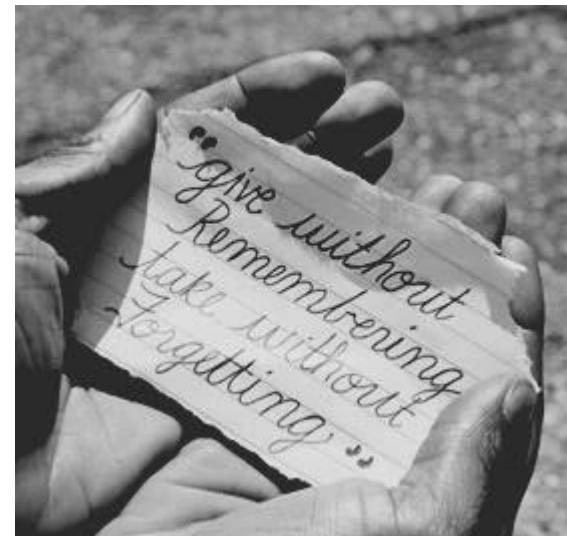 "give without
Remembering
take without
Forgetting"